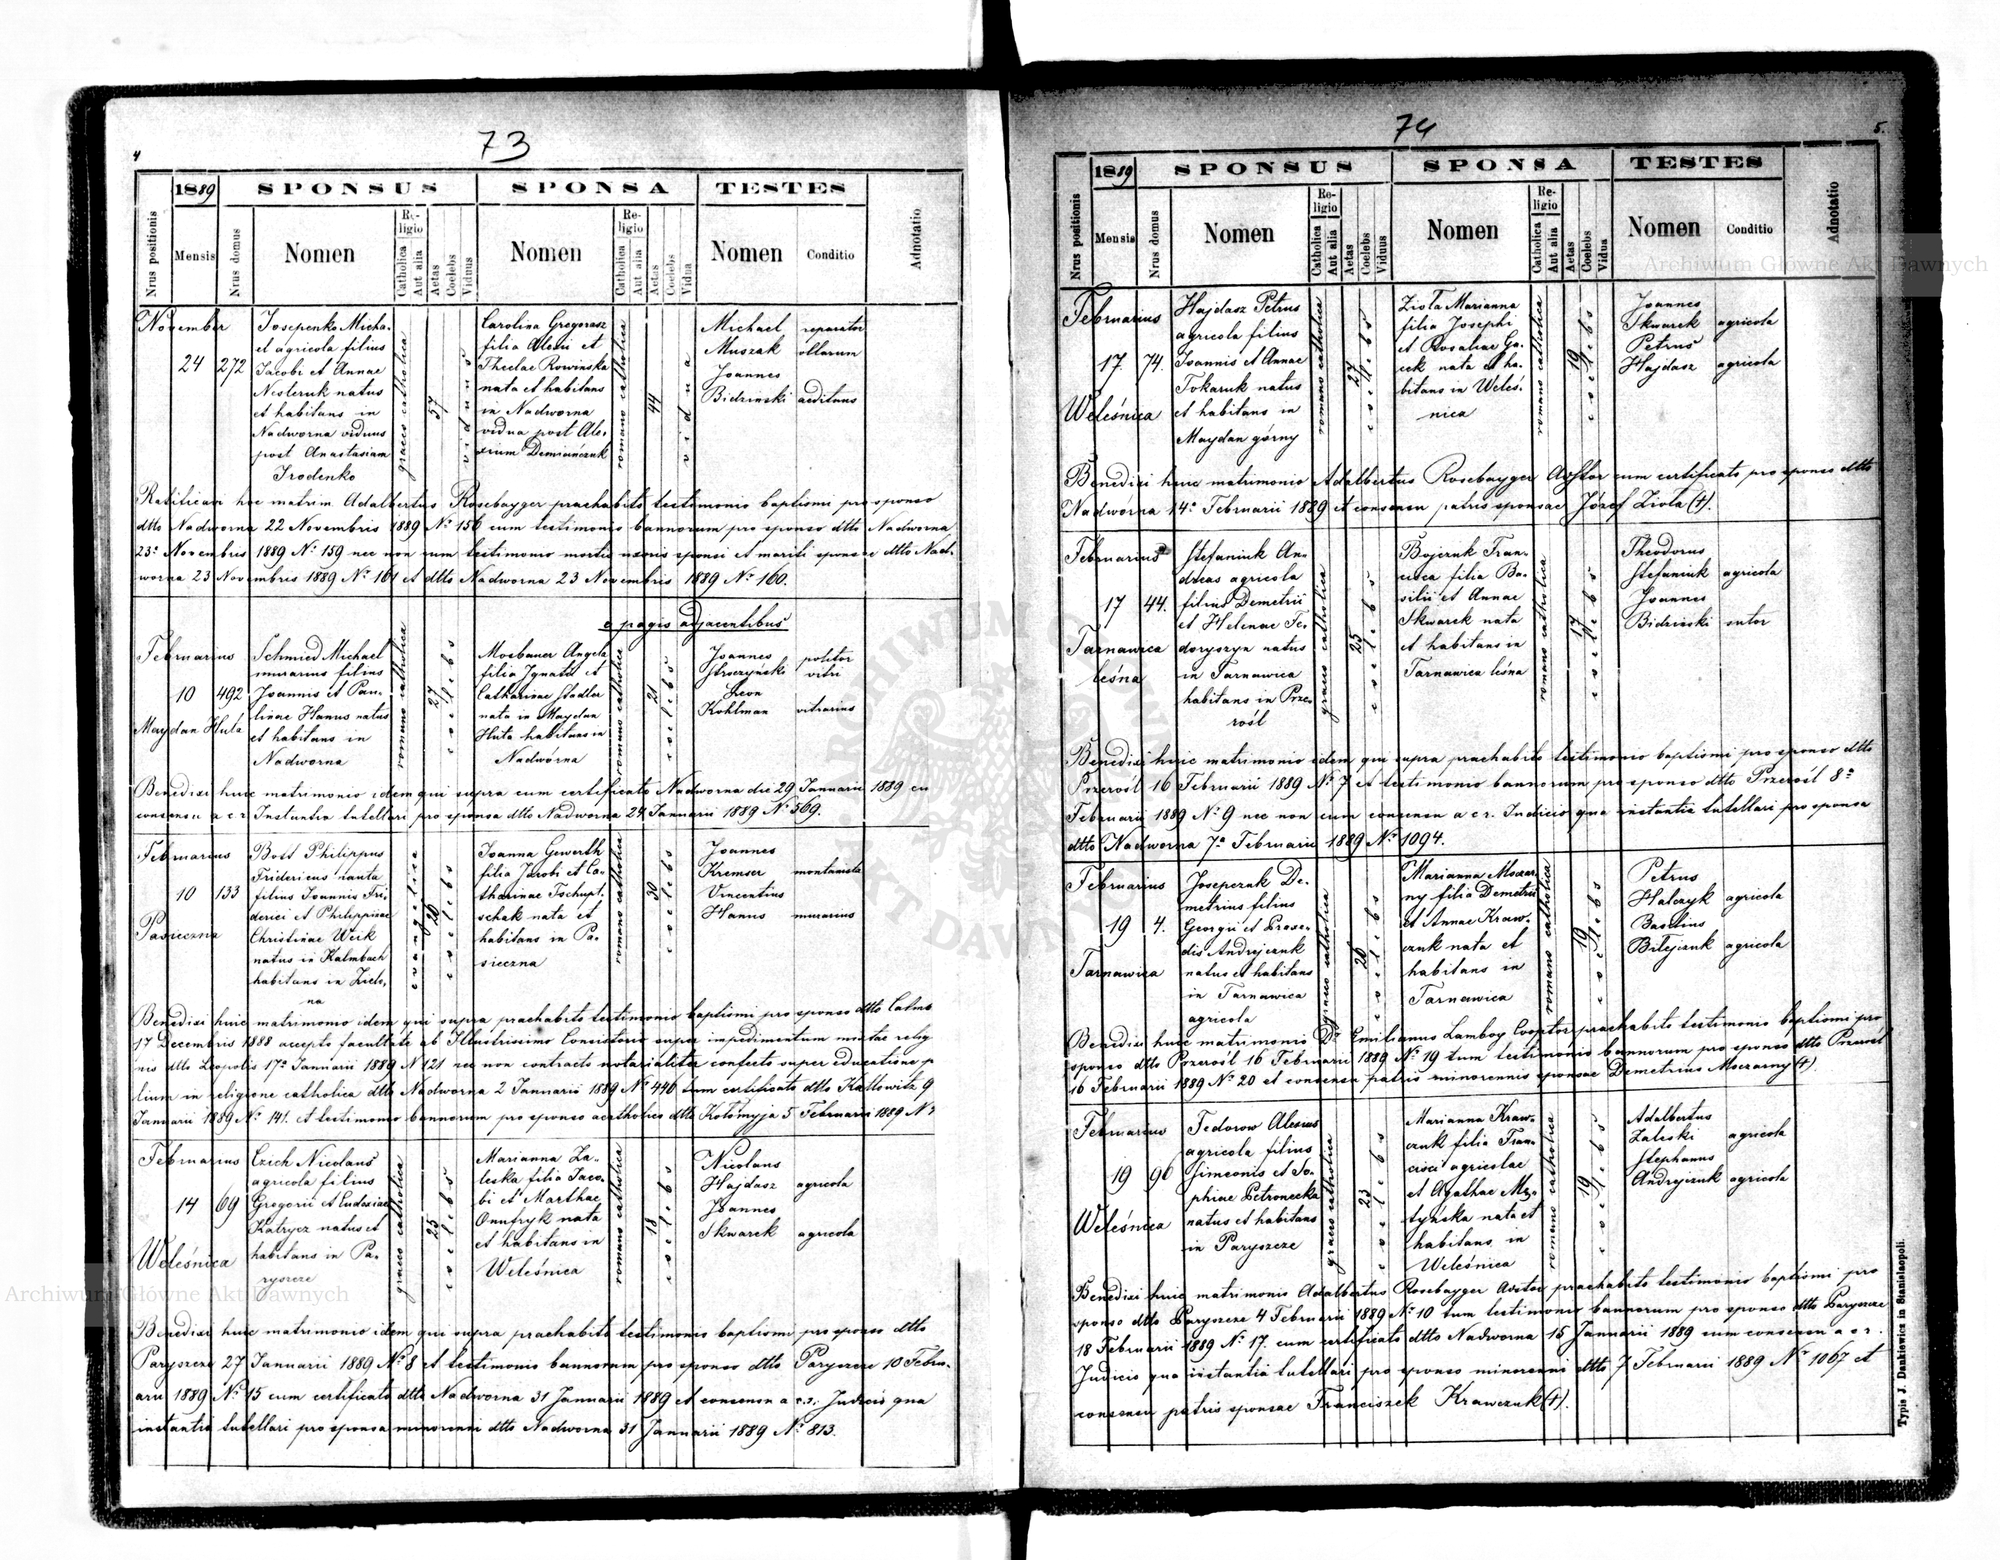 4
73
1889
SPONSUS
SPONSA
TESTES
Nrus positionis
Mensis
Nrus domus
Nomen
Re-
ligio
Catholica
Aut alia
Aetas
Coelebs
Viduus
Nomen
Re-
ligio
Catholica
Aut alia
Aetas
Coelebs
Vidua
Nomen
Conditio
Adnotatio
November
24
272
Josepenko Micha-
el agricola filius
Jacobi et Annae
Nesteruk natus
et habitans in
Nadworna viduus
post Anastasiam
Irodenko
graeco catholica
57
viduus
Carolina Gregorasz
filia Alexii et
Theclae Rowinska
nata et habitans
in Nadworna
vidua post Ale-
xium Demianczuk
romano catholica
44
vidua
Michael reparator
Muszak ollarum
Joannes
Bidzinski aedituus
Ratificavi hoc matrim. Adalbertus Rosebayger praehabito testimonio baptismi pro sponso
dtto Nadworna 22 Novembris 1889 Nº 156 cum testimonio bannorum pro sponso dtto Nadworna
23º Novembris 1889 Nº 159 nec non cum testimonio mortis uxoris sponsi et mariti sponsae dtto Nad-
worna 23 Novembris 1889 Nº 161 et dtto Nadworna 23 Novembris 1889 Nº 160.
e pagis adjacentibus
Februarius
10
492
Maydan Huta
Schmied Michael
murarius filius
Joannis et Pau-
linae Hanus natus
et habitans in
Nadworna
romano catholica
27
coelebs
Mosbauer Angela
filia Ignatii et
Catharinae Stadler
nata in Maydan
Huta habitans in
Nadwórna
romano catholica
21
coelebs
Joannes politor
Stroczyński vitri
Leon
Kohlman vitrarius
Benedixi huic matrimonio idem qui supra cum certificato Nadworna die 29 Januarii 1889 cu
consensu a c r. Instantia tutellari pro sponsa dtto Nadworna 24 Januarii 1889 Nº 569.
Februarius
10
133
Pasieczna
Bott Philippus
Fridericus nauta
filius Joannis Fri-
derici et Philippinae
Christinae Weik
natus in Kalmbach
habitans in Ziele-
na
evangelica
26
coelebs
Joanna Gewerth
filia Jacobi et Ca-
tharinae Tschupt-
schak nata et
habitans in Pa-
sieczna
romano catholica
30
coelebs
Joannes
Kremser montanista
Vincentius
Hanus murarius
Benedixi huic matrimonio idem qui supra praehabito testimonio baptismi pro sponso dtto Calmb
17 Decembris 1888 accepta facultate ab Illustrissimo Consistorio super impedimentum mixtae relig
nis dtto Leopolis 17º Januarii 1889 Nº 121 nec non contracto notarialiter confecto super educatione p
lium in religione catholica dtto Nadworna 2 Januarii 1889 Nº 446 tum certificato dtto Kattowitz 9
Januarii 1889 Nº 141. et testimonio bannorum pro sponso acatholico dtto Kołomyja 5 Februarii 1889 Nº
Februarius
14
69
Weleśnica
Czich Nicolaus
agricola filius
Gregorii et Eudoxiae
Katrycz natus et
habitans in Pa-
ryszcze
graeco catholica
25
coelebs
Marianna Za-
leska filia Jaco-
bi et Marthae
Onufryk nata
et habitans in
Weleśnica
romano catholica
18
coelebs
Nicolaus
Hajdasz agricola
Joannes
Skwarek agricola
Benedixi huic matrimonio idem qui supra praehabito testimonio baptismi pro sponso dtto
Paryszcze 27 Januarii 1889 Nº 8 et testimonio bannorum pro sponso dtto Paryszcze 10 Febru-
arii 1889 Nº 15 cum certificato dtto Nadworna 31 Januarii 1889 et consensu a c. r. Judicio qua
instantia tutellari pro sponsa minorenni dtto Nadworna 31 Januarii 1889 Nº 813.
74
5.
1889
SPONSUS
SPONSA
TESTES
Nrus positionis
Mensis
Nrus domus
Nomen
Re-
ligio
Catholica
Aut alia
Aetas
Coelebs
Viduus
Nomen
Re-
ligio
Catholica
Aut alia
Aetas
Coelebs
Vidua
Nomen
Conditio
Adnotatio
Februarius
17.
74.
Weleśnica
Hajdasz Petrus
agricola filius
Joannis et Annae
Tokaruk natus
et habitans in
Maydan górny
romano catholica
27
coelebs
Ziola Marianna
filia Josephi
et Rosaliae Ga-
cek nata et ha-
bitans in Weleś-
nica
romano catholica
19
coelebs
Joannes
Skwarek agricola
Petrus
Hajdasz agricola
Benedixi huic matrimonio Adalbertus Rosebayger Adstor cum certificato pro sponso dtto
Nadwórna 14º Februarii 1889 et consensu patris sponsae Józef Ziola (+).
Februarius
17
44.
Tarnawica
leśna
Stefaniuk An-
dreas agricola
filius Demetrii
et Helenae Fe-
doryszyn natus
in Tarnawica
habitans in Prze-
rośl
graeco catholica
25
coelebs
Bojczuk Fran-
cisca filia Ba-
silii et Annae
Skwarek nata
et habitans in
Tarnawica leśna
romano catholica
17
coelebs
Theodorus
Stefaniuk agricola
Joannes
Bidzinski sutor
Benedixi huic matrimonio idem qui supra praehabito testimonio baptismi pro sponso dtto
Przerośl 16 Februarii 1889 Nº 7 et testimonio bannorum pro sponso dtto Przerośl 8º
Februarii 1889 Nº 9 nec non cum consensu a c r. Judicio qua instantia tutellari pro sponsa
dtto Nadworna 7º Februarii 1889 Nº 1094.
Februarius
19
4.
Tarnawica
Josepczuk De-
metrius filius
Georgii et Praxe-
dis Andrejczuk
natus et habitans
in Tarnawica
agricola
graeco catholica
26
coelebs
Marianna Moczar-
ny filia Demetrii
et Annae Kraw-
czuk nata et
habitans in
Tarnawica
romano catholica
19
coelebs
Petrus
Halczyk agricola
Basilius
Bilejczuk agricola
Benedixi huic matrimonio Dr Emilianus Lamboy Cooptor praehabito testimonio baptismi pro
sponso dtto Przerośl 16 Februarii 1889 Nº 19 tum testimonio bannorum pro sponso dtto Przerośl
16 Februarii 1889 Nº 20 et consensu patris minorennis sponsae Demetrius Moczarny (+).
Februarius
19
90
Weleśnica
Fedorow Alexius
agricola filius
Simeonis et So-
phiae Petronecka
natus et habitans
in Paryszcze
graeco catholica
23
coelebs
Marianna Kraw-
czuk filia Fran-
cisci agricolae
et Agathae My-
tyńska nata et
habitans in
Weleśnica
romano catholica
19
coelebs
Adalbertus
Zaleski agricola
Stephanus
Andryczuk agricola
Benedixi huic matrimonio Adalbertus Rosebayger Adstor praehabito testimonio baptismi pro
sponso dtto Paryszcze 4 Februarii 1889 Nº 10 tum testimonio bannorum pro sponso dtto Paryszcze
18 Februarii 1889 Nº 17. cum certificato dtto Nadworna 15 Januarii 1889 cum consensu a c r.
Judicio qua instantia tutellari pro sponso minorenni dtto 7 Februarii 1889 Nº 1067 et
consensu patris sponsae Franciszek Krawczuk (+).
Typis J. Dankiewicz in Stanislaopoli.
Archiwum Główne Akt Dawnych
Archiwum Główne Akt Dawnych
ARCHIWUM GŁÓWNE AKT DAWNYCH